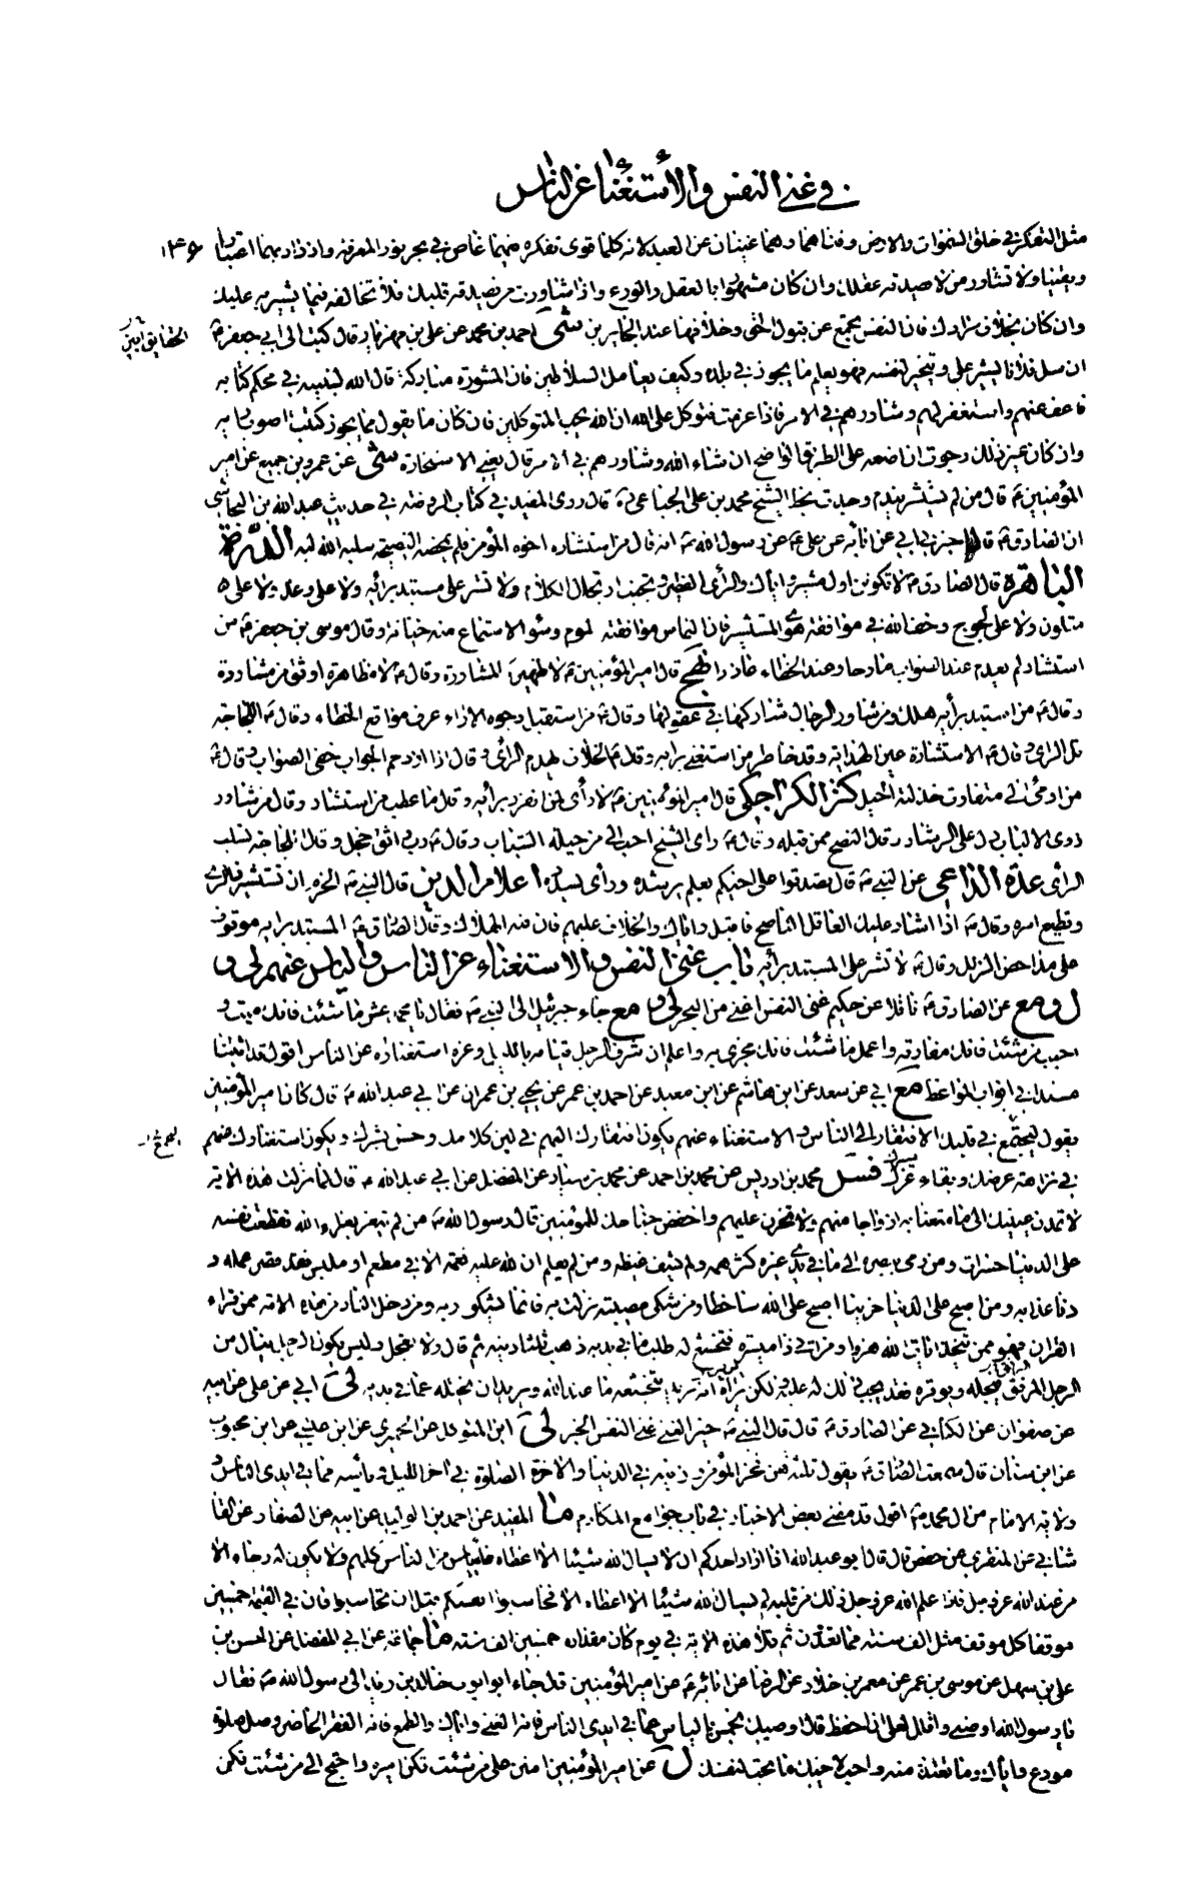 في غنى النفس والأستغناء عن الناس
مثل التفكر في خلق السموات والارض وفنائهما وهما غيبتان عن العبد لانه كلما قوى تفكره فيهما غاص في بحر نور المعرفة وازداد بهما اعتبارا
ويقينا ولا تشاور من لا يصدقه عقلك وان كان مشهورا بالعقل والورع واذا شاورت من يصدقه قلبك فلا تخالفه فيما يشير به عليك
وان كان بخلاف مرادك فان النفس تجمع عن قبول الحق وخلافها عند الحائرين شى احمد بن محمد عن علي بن مهزيار قال كتب الى ابو جعفر ع
ان سل فلانا يشير على ويتخير لنفسه فهو يعلم ما يجوز في بلده وكيف يعامل السلاطين فان المشورة مباركة قال الله لنبيه في محكم كتابه
فاعف عنهم واستغفر لهم وشاورهم في الامر فاذا عزمت فتوكل على الله ان الله يحب المتوكلين فان كان ما يقول مما يجوز كتبت اصوب رايه
وان كان غير ذلك رجوت ان اضعه على الطريق الواضح ان شاء الله وشاورهم في الامر قال يعني الاستخارة شى عن عمرو بن جميع عن امير
المؤمنين ع قال من لم يستشر يندم وجدت بخط الشيخ محمد بن علي الجباعي ره قال روى المفيد في كتاب الروضة في حديث عبد الله بن النجاشى
ان الصادق ع قال اخبرني ابي عن ابائه عن علي ع عن رسول الله ص انه قال من استشاره اخوه المؤمن فلم يمحضه النصيحة سلبه الله لبه الدرة
الباهرة قال الصادق ع لا تكونن اول مشير واياك والرأى الفطير وتجنب ارتجال الكلام ولا تشر على مستبد برأيه ولا على وغد ولا على
متلون ولا على لجوج وخف الله في موافقة هوى المستشير فان التماس موافقته لوم وسوء الاستماع منه خيانة وقال موسى بن جعفر ع من
استشار لم يعدم عند الصواب مادحا وعند الخطاء عاذرا نهج قال امير المؤمنين ع لا ظهير كالمشاورة وقال ع لا مظاهرة اوثق من مشاورة
وقال ع من استبد برأيه هلك ومن شاور الرجال شاركها في عقولها وقال ع من استقبل وجوه الاراء عرف مواقع الخطاء وقال ع اللجاجة
تسل الراى وقال ع الاستشارة عين الهداية وقد خاطر من استغنى برايه وقال ع الخلاف يهدم الرأى وقال اذا ازدحم الجواب خفى الصواب وقال ع
من اومى الى متفاوت خذلته الحيل كنز الكراجكى قال امير المؤمنين ع لا رأى لمن انفرد برأيه وقال ما عطب من استشار وقال من شاور
ذوى الالباب دل على الرشاد وقال النصح ممن قبله وقال ع راى الشيخ احب الى من حيلة الشباب وقال ع رب واثق خجل وقال اللجاجة تسلب
الرأى عدة الداعى عن النبي ص قال تصدقوا على اخيكم بعلم يرشده ورأى يسدده اعلام الدين قال النبي ص الحزم ان تستشير ذا الرأى
وتطيع امره وقال ص اذا اشار عليك العاقل الناصح فاقبل واياك والخلاف عليهم فان فيه الهلاك وقال الصادق ع المستبد برايه موقوف
على مداحض الزلل وقال ع لا تشر على المستبد برأيه باب غنى النفس والاستغناء عن الناس والياس عنهم لى و
ل ومع عن الصادق ع ناقلا عن حكيم غنى النفس اغنى من البحر لى و مع جاء جبرئيل الى النبي ص فقال يا محمد عش ما شئت فانك ميت و
احبب من شئت فانك مفارقه واعمل ما شئت فانك مجزى به واعلم ان شرف الرجل قيامه بالليل وعزه استغناؤه عن الناس اقول قد اثبتنا
مسندا في ابواب المواعظ مع ابي عن سعد عن ابن هاشم عن ابن معبد عن احمد بن عمر عن يحيى بن عمران عن ابي عبد الله ع قال كان امير المؤمنين
يقول ليجتمع في قلبك الافتقار الى الناس والاستغناء عنهم يكون افتقارك اليهم في لين كلامك وحسن بشرك ويكون استغناؤك عنهم
في نزاهة عرضك وبقاء عزك فس محمد بن ادريس عن محمد بن احمد عن محمد بن سيار عن المفضل عن ابي عبد الله ع قال لما نزلت هذه الاية
لا تمدن عينيك الى ما متعنا به ازواجا منهم ولا تحزن عليهم واخفض جناحك للمؤمنين قال رسول الله ص من لم يتعز بعزاء الله تقطعت نفسه
على الدنيا حسرات ومن رمى ببصره الى ما في يدى غيره كثر همه ولم يشف غيظه ومن لم يعلم ان لله عليه نعمة الا في مطعم او ملبس فقد قصر عمله و
دنا عذابه ومن اصبح على الدنيا حزينا اصبح على الله ساخطا ومن شكى مصيبة نزلت به فانما يشكو ربه ومن دخل النار من هذه الامة ممن قراء
القران فهو ممن يتخذ ايات الله هزوا ومن اتى ذا ميسرة فتخشع له طلب ما في يديه ذهب ثلثا دينه ثم قال ولا تعجل وليس يكون الرجل ينال من
الرجل المرفق فيجله ويوقره فقد يجب ذلك له عليه ولكن تراه انه يريد بتخشعه ما عند الله ويريد ان يختله عما في يديه لى ابي عن علي عن ابيه
عن صفوان عن الكناني عن الصادق ع قال قال النبي ص خير الغنى غنى النفس الخبر لى ابن المتوكل عن الحميري عن ابن عيسى عن ابن محبوب
عن ابن سنان قال سمعت الصادق ع يقول ثلثة هن فخر المؤمن وزينه في الدنيا والاخرة الصلوة في اخر الليل ويأسه مما في ايدى الناس و
ولاية الامام من ال محمد ص اقول قد مضى بعض الاخبار في باب جوامع المكارم ما المفيد عن احمد بن الوليد عن ابيه عن الصفار عن القا
شاني عن المنقرى عن حفص قال قال ابو عبد الله اذا اراد احدكم ان لا يسال الله شيئا الا اعطاه فليياس من الناس كلهم ولا يكون له رجاء الا
من عند الله عز وجل فاذا علم الله عز وجل ذلك من قلبه لم يسال الله شيئا الا اعطاه الا فحاسبوا انفسكم قبل ان تحاسبوا فان في القيمة خمسين
موقفا كل موقف مثل الف سنة مما تعدون ثم تلا هذه الاية في يوم كان مقداره خمسين الف سنة ما جماعة عن ابي المفضل عن الحسن بن
علي بن سهل عن موسى بن عمر عن معمر بن خلاد عن الرضا عن ابائه ع عن امير المؤمنين قال جاء ابو ايوب خالد بن زيد الى رسول الله ص فقال
يا رسول الله اوصنى واقلل لعلى ان احفظ قال اوصيك بخمس بالياس عما في ايدى الناس فانه الغنى واياك والطمع فانه الفقر الحاضر وصل صلوة
مودع واياك وما تعتذر منه واحب لاخيك ما تحب لنفسك ل عن امير المؤمنين امنن على من شئت تكن اميره واحتج الى من شئت تكن